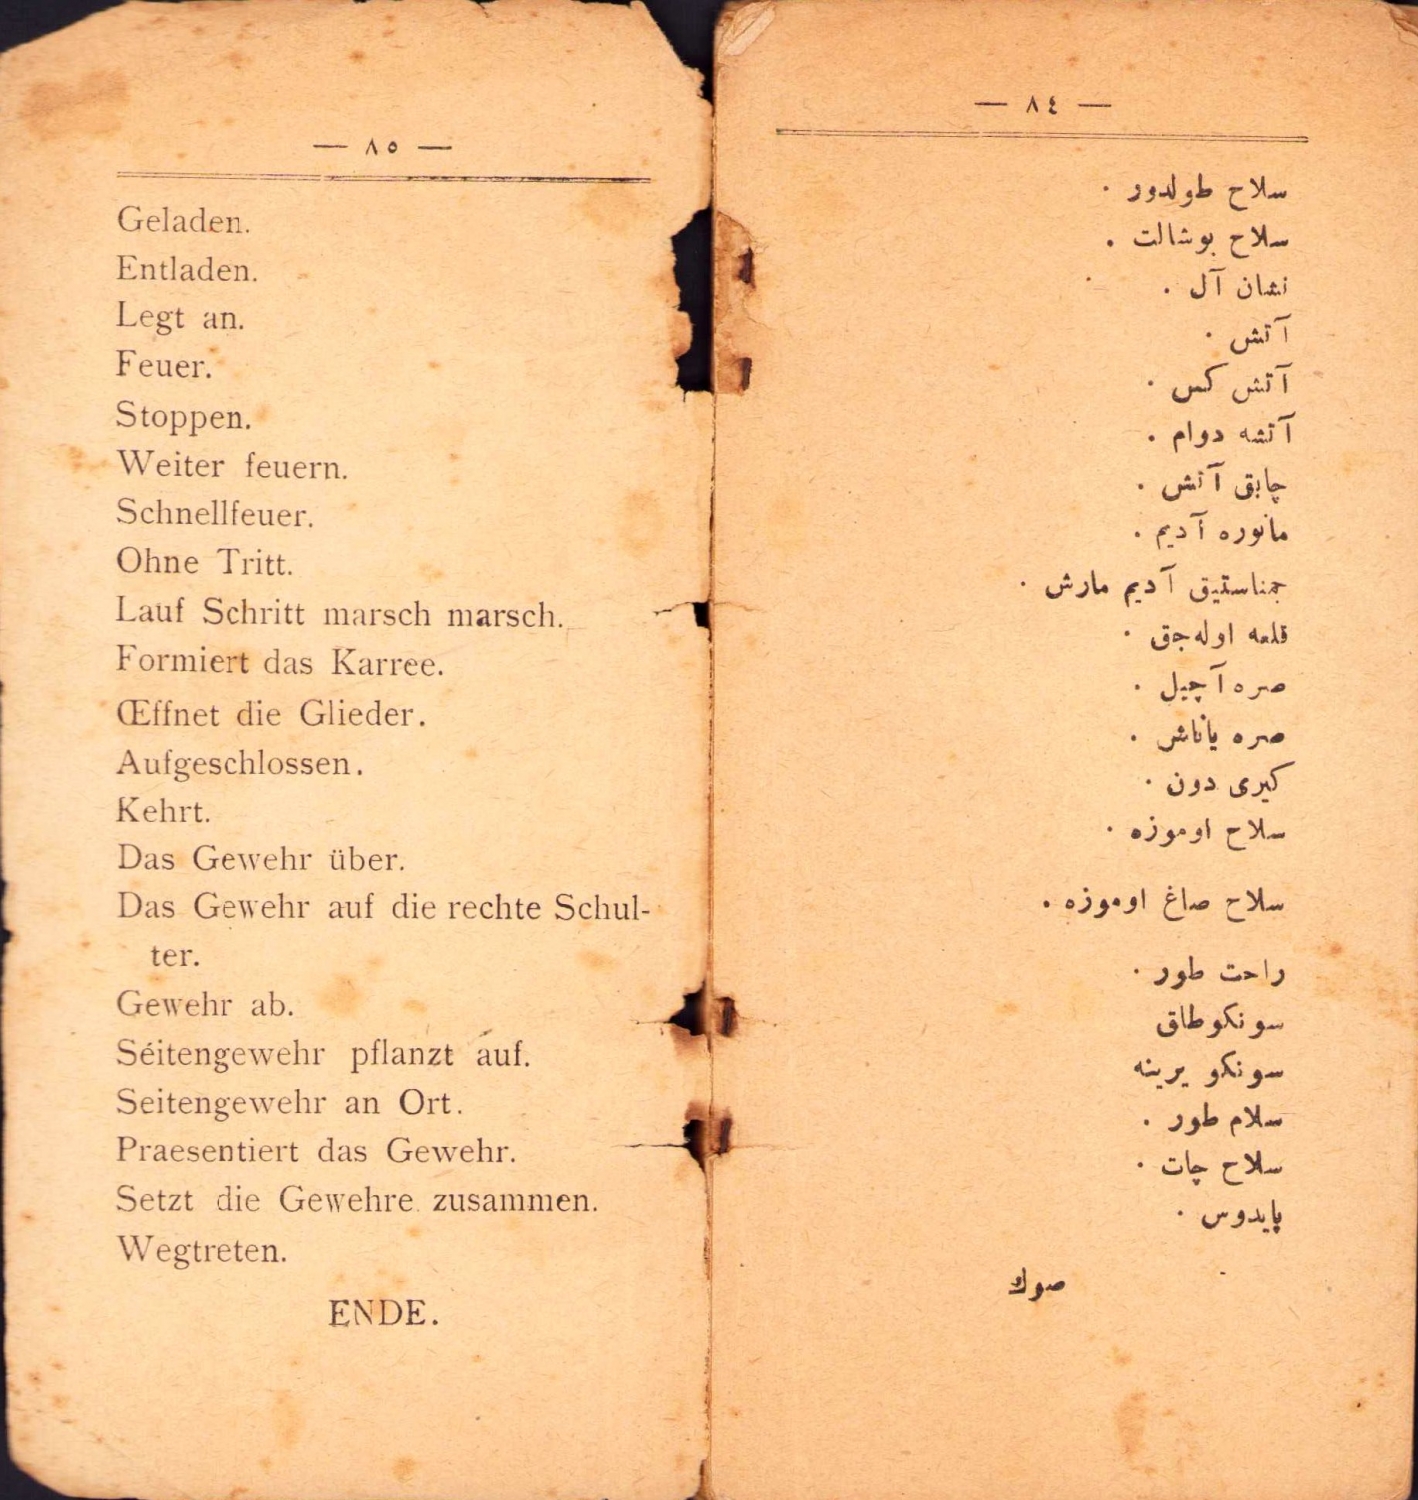 — ٨٤ —
سلاح طولدور .
سلاح بوشالت .
نشان آل .
آتش .
آتش كس .
آتشه دوام .
چابق آتش .
مانوره آديم .
جمناستيق آديم مارش .
قلعه اوله‌جق .
صره آچيل .
صره ياناش .
كيرى دون .
سلاح اوموزه .
سلاح صاغ اوموزه .
راحت طور .
سونكو طاق
سونكو يرينه
سلام طور .
سلاح چات .
پايدوس .
صوك
— ٨٥ —
Geladen.
Entladen.
Legt an.
Feuer.
Stoppen.
Weiter feuern.
Schnellfeuer.
Ohne Tritt.
Lauf Schritt marsch marsch.
Formiert das Karree.
Œffnet die Glieder.
Aufgeschlossen.
Kehrt.
Das Gewehr über.
Das Gewehr auf die rechte Schul-
ter.
Gewehr ab.
Séitengewehr pflanzt auf.
Seitengewehr an Ort.
Praesentiert das Gewehr.
Setzt die Gewehre zusammen.
Wegtreten.
ENDE.